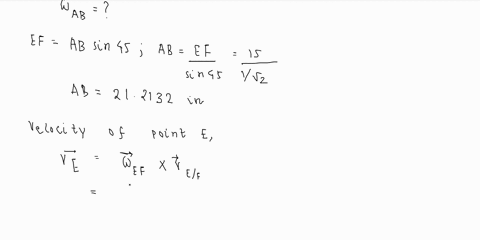 ω_AB = ?
EF = AB sin 45 ; AB = EF / sin 45 = 15 / 1/√2
AB = 21.2132 in
Velocity of point E,
v⃗_E = ω⃗_EF × r⃗_E/F
=